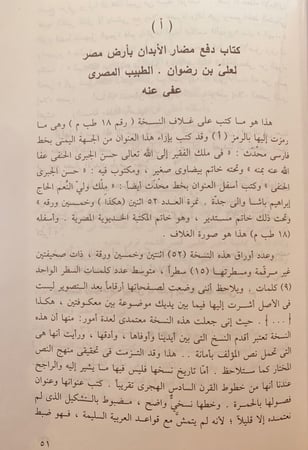 ( أ )
كتاب دفع مضار الأبدان بأرض مصر
لعلىّ بن رضوان . الطبيب المصرى
عفى عنه
هذا هو ما كتب على غلاف النسخة ( رقم ١٨ طب م ) وهى ما
رمزت إليها بالرمز ( أ ) وقد كتب بإزاء هذا العنوان من الجهة اليمنى بخط
فارسى محدّث : « فى ملك الفقير إلى الله تعالى حسن الجبرى الحنفى عفا
الله عنه بمنه » وتحته خاتم بيضاوى صغير ، ومكتوب فيه : « حسن الجبرى
الحنفى » وكتب أسفل العنوان بخط محدّث أيضاً : « ملك ولىّ النِّعم الحاج
إبراهيم باشا والى جدة . نمرة العدد ٥٢ اثنين ( هكذا ) وخمسين ورقه »
وتحت ذلك خاتم مستدير ، وهو خاتم المكتبة الخديوية المصرية . وأسفله
( ١٨ طب م ) هذا هو صورة الغلاف .
وعدد أوراق هذه النسخة ( ٥٢ ) اثنتين وخمسين ورقة ، ذات صحيفتين
غير مرقّمة ومسطرتها ( ١٥ ) سطراً ، متوسط عدد كلمات السطر الواحد
( ٩ ) كلمات . ويلاحظ أننى وضعت لصفحاتها أرقاماً بعد التصوير ليست
فى الأصل أشرت إليها فيما بين يديك موضوعة بين معكوفتين ، هكذا
[ ... ] . حيث إنى جعلت هذه النسخة معتمدى لعدة أمور: منها أن هذه
النسخة تعتبر أقدم النسخ التى بين أيدينا وأوفاها ، وأدقها ، ورأيت أنها هى
التى تحمل نص المؤلف بأمانة .. هذا وقد التزمت فى تحقيقى منهج النص
المختار كما ستلاحظ . أمّا تاريخ نسخها فليس فيها ما يشير إليه والراجح
عندنا أنها من خطوط القرن السادس الهجرى تقريباً . كتب عنوانها وعنوان
فصولها بالحمرة . وخطها نسخىٌّ واضح ، مضبوط بالتشكيل الذى لم
نعتمده إلا قليلاً ؛ لأنه لم يتمشّ مع قواعد العربية السليمة ، فهو ضبط
٥١